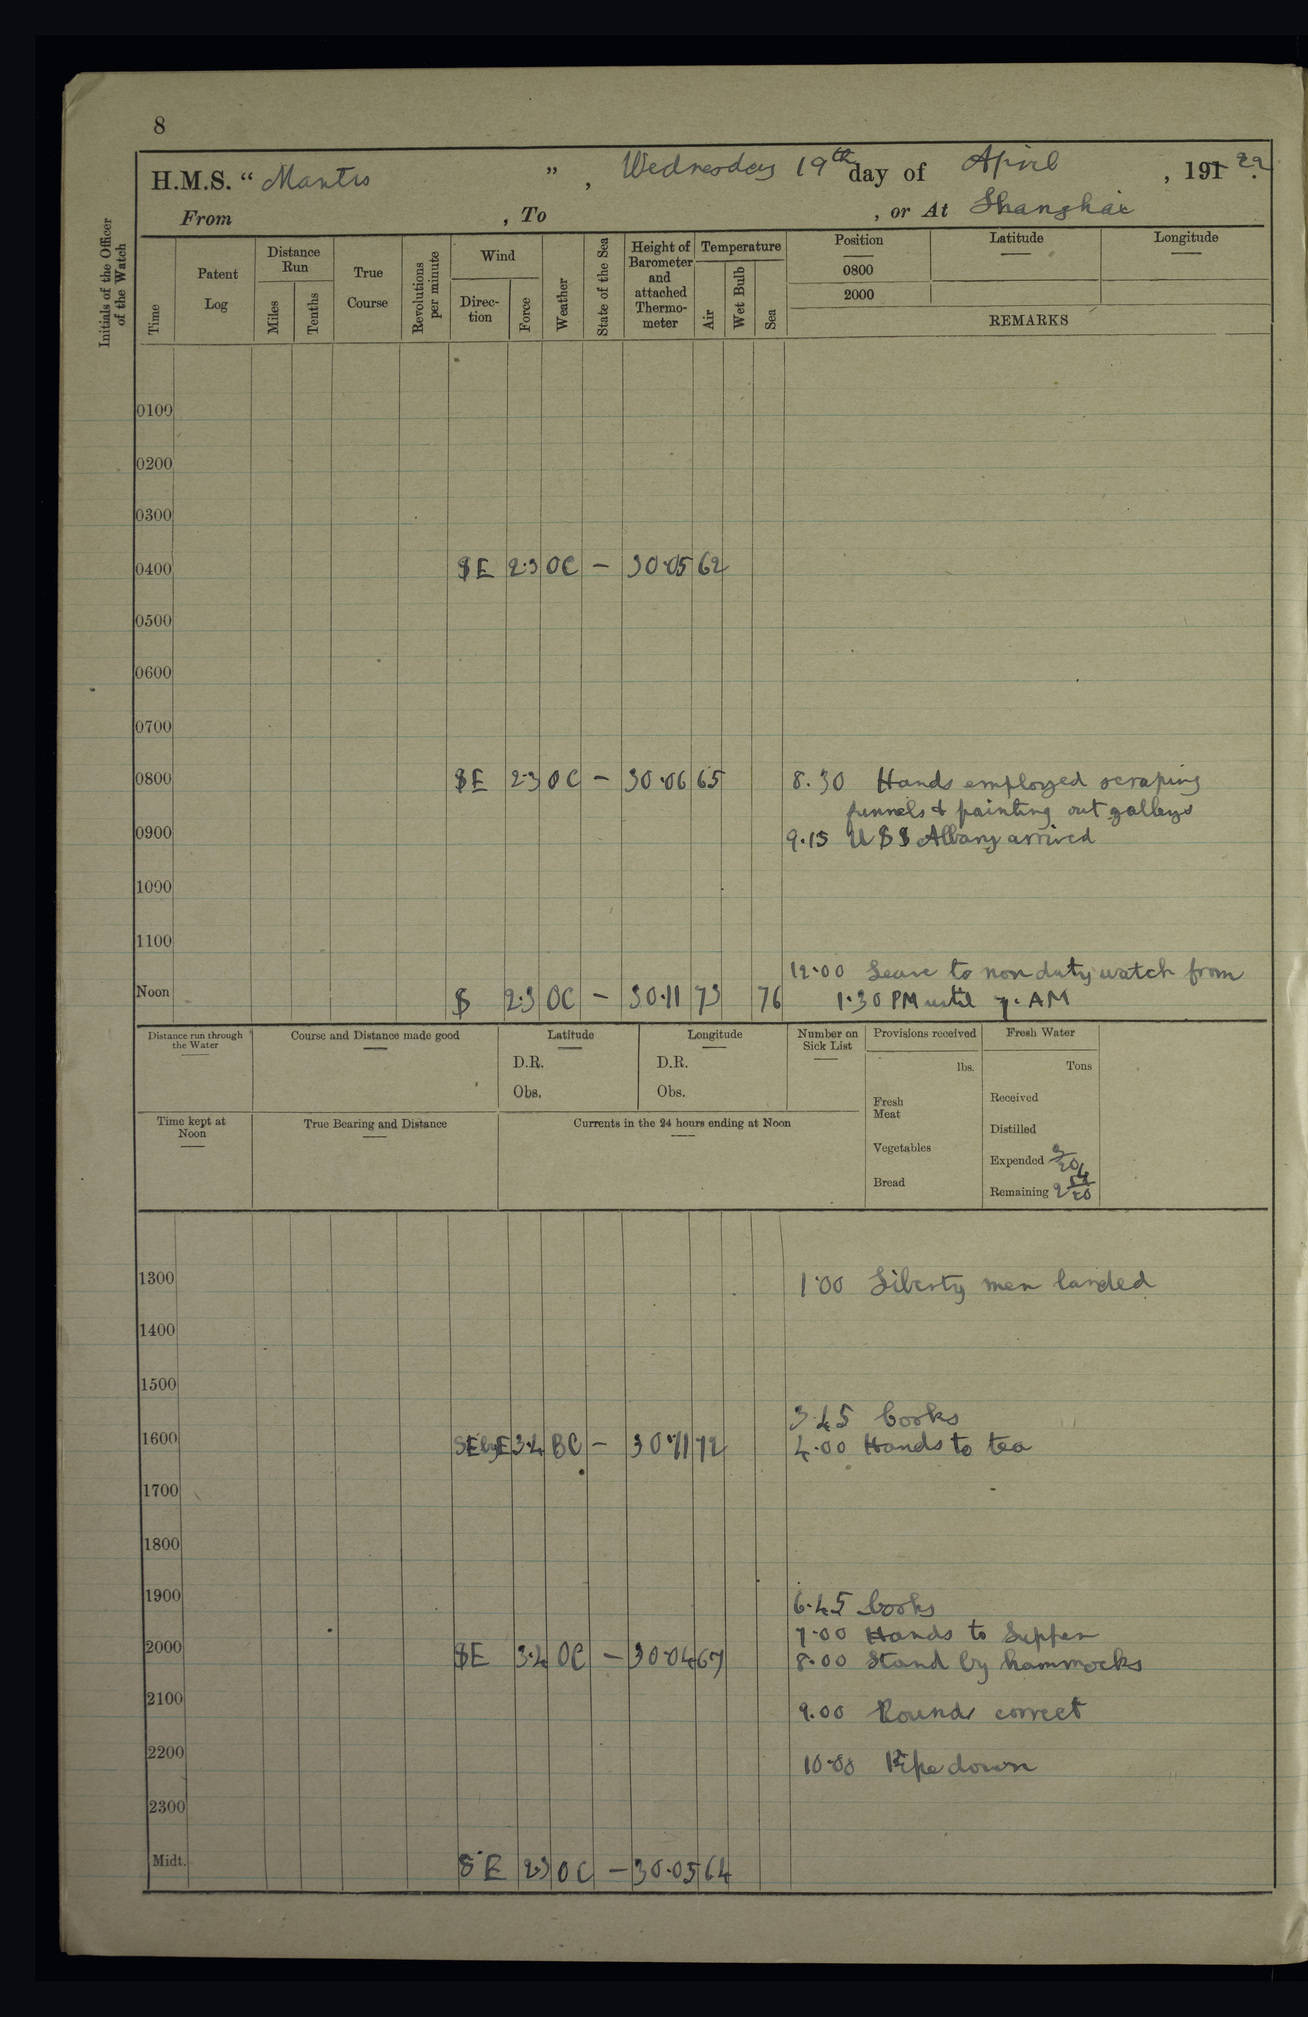 8
H.M.S. “ Mantis ” , Wednesday 19th day of April , 191 22.
From , To , or At Shanghai
Initials of the Officer of the Watch
Time
Patent Log
Distance Run
Miles
Tenths
True Course
Revolutions per minute
Wind
Direc-tion
Force
Weather
State of the Sea
Height of Barometer and attached Thermo-meter
Temperature
Air
Wet Bulb
Sea
Position
0800
2000
Latitude
Longitude
REMARKS
0100
0200
0300
0400 SE 2·3 OC – 30·05 62
0500
0600
0700
0800 SE 2·3 OC – 30·06 65 8.30 Hands employed scraping
funnels & painting out galleys
0900 9.15 USS Albany arrived
1000
1100
12·00 Leave to non duty watch from
Noon S 2·3 OC – 30·11 73 76 1·30 PM until 7. AM
Distance run through the Water
Course and Distance made good
Latitude
D.R.
Obs.
Longitude
D.R.
Obs.
Number on Sick List
Provisions received
lbs.
Fresh Meat
Vegetables
Bread
Fresh Water
Tons
Received
Distilled
Expended
Remaining
Time kept at Noon
True Bearing and Distance
Currents in the 24 hours ending at Noon
1300 1·00 Liberty men landed
1400
1500
3.45 Cooks
1600 SEbyE 3·4 BC – 30·11 72 4.00 Hands to tea
1700
1800
1900 6.45 Cooks
7·00 Hands to Supper
2000 SE 3·4 OC – 30·04 67 8.00 Stand by hammocks
2100 9.00 Rounds correct
2200 10·00 Pipe down
2300
Midt. SE 2·3 OC – 30·05 64